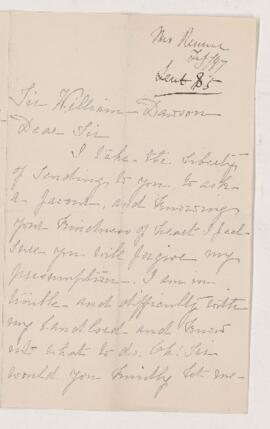 Mrs
Sent $5
Sir William Dawson
Dear Sir
I take the liberty
of sending to you, to ask
a favour, and knowing
your kindness of heart I feel
sure you will forgive my
presumption. I am in
trouble and difficulty with
my landlord and know
not what to do. Oh! Sir
would you kindly let me